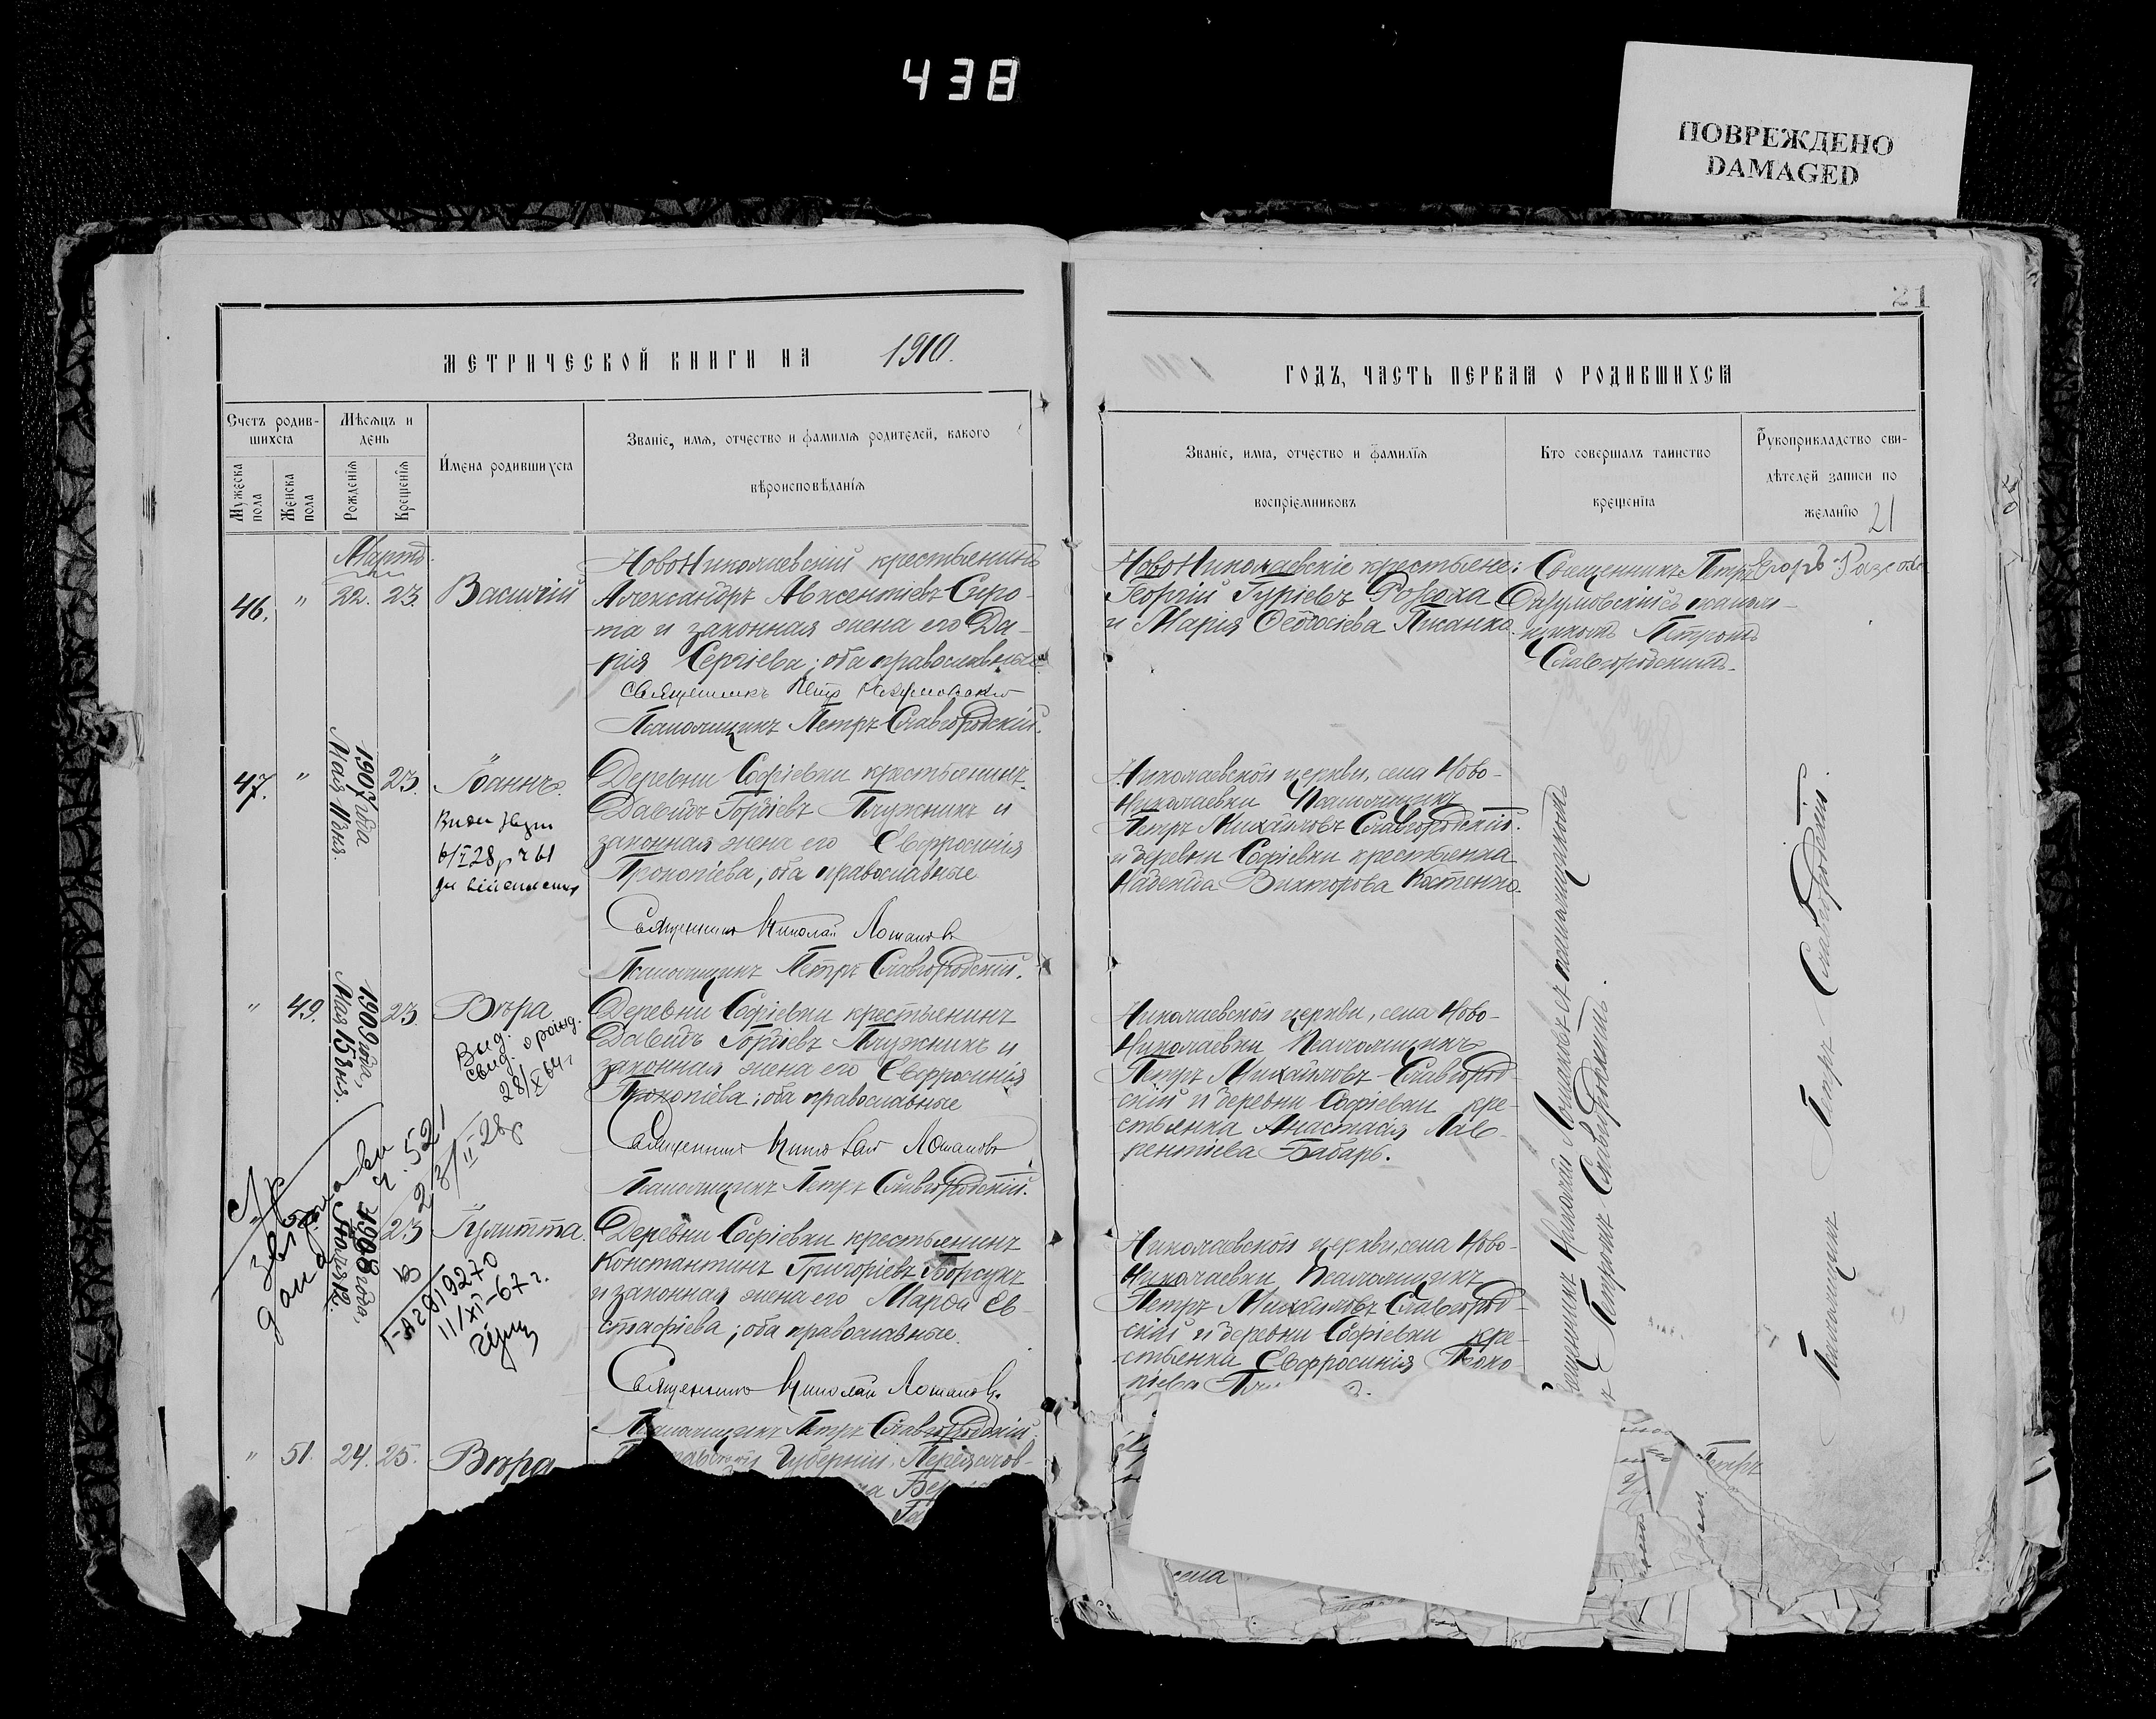 438
ПОВРЕЖДЕНО
DAMAGED
МЕТРИЧЕСКОЙ КНИГИ НА 1910.
Счетъ родив-
шихся
Мѣсяцъ и
день
Мужеска
пола
Женска
пола
Рожденія
Крещенія
Имена родившихся
Званіе, имя, отчество и фамилія родителей, какого
вѣроисповѣданія
Марта
46. " 22. 23. Василій
НовоНиколаевскій крестьянинъ
Александръ Авксентіевъ Сиро-
та и законная жена его Да-
рія Сергіева; оба православные
Священникъ Петръ
Псаломщикъ Петръ Славгородскій.
47. " 1907 года
Мая 11 дня.
23. Іоаннъ.
Деревни Софіевки крестьянинъ
Давидъ Гордіевъ Плужникъ и
законная жена его Евфросинія
Прокопіева; оба православные
Священникъ Николай Лошаковъ
Псаломщикъ Петръ Славгородскій.
" 49. 1909 года,
Мая 15 дня.
23. Вѣра
Выд.
свид. о рожд.
28/X 64 г
Деревни Софіевки крестьянинъ
Давидъ Гордіевъ Плужникъ и
законная жена его Евфросинія
Прокопіева; оба православные
Священникъ Николай Лошаковъ
Псаломщикъ Петръ Славгородскій.
ч. 521
1908 года,
23 Іулитта.
11/XI-67 г.
Деревни Софіевки крестьянинъ
Константинъ Григоріевъ Борсукъ
и законная жена его Марѳа Ев-
стафіева; оба православные.
Священникъ Николай Лошаковъ
Псаломщикъ Петръ Славгородскій.
" 51. 24. 25. Вѣра
Губерніи,
21
ГОДЪ, ЧАСТЬ ПЕРВАЯ О РОДИВШИХСЯ
Званіе, имя, отчество и фамилія
воспріемниковъ
Кто совершалъ таинство
крещенія
Рукоприкладство сви-
дѣтелей записи по
желанію 21
НовоНиколаевскіе крестьяне:
Георгій Гуріевъ
и Марія Ѳеодосіева Писанко.
Священникъ Петръ
съ псалом-
щикомъ Петромъ
Славгородскимъ.
Николаевской церкви, села Ново-
Николаевки Псаломщикъ
Петръ Михайловъ Славгородскій.
и деревни Софіевки крестьянка
Надежда Викторова Костенко.
Николаевской церкви, села Ново-
Николаевки Псаломщикъ
Петръ Михайловъ Славгород-
скій и деревни Софіевки кре-
стьянка Анастасія Лав-
рентіева Бабарь.
Николаевской церкви, села Ново-
Николаевки Псаломщикъ
Петръ Михайловъ Славгород-
скій и деревни Софіевки кре-
стьянка Евфросинія Проко-
піева
Священникъ Николай Лошаковъ съ псаломщикомъ
Петромъ Славгородскимъ.
Псаломщикъ Петръ Славгородскій.
Петръ
села